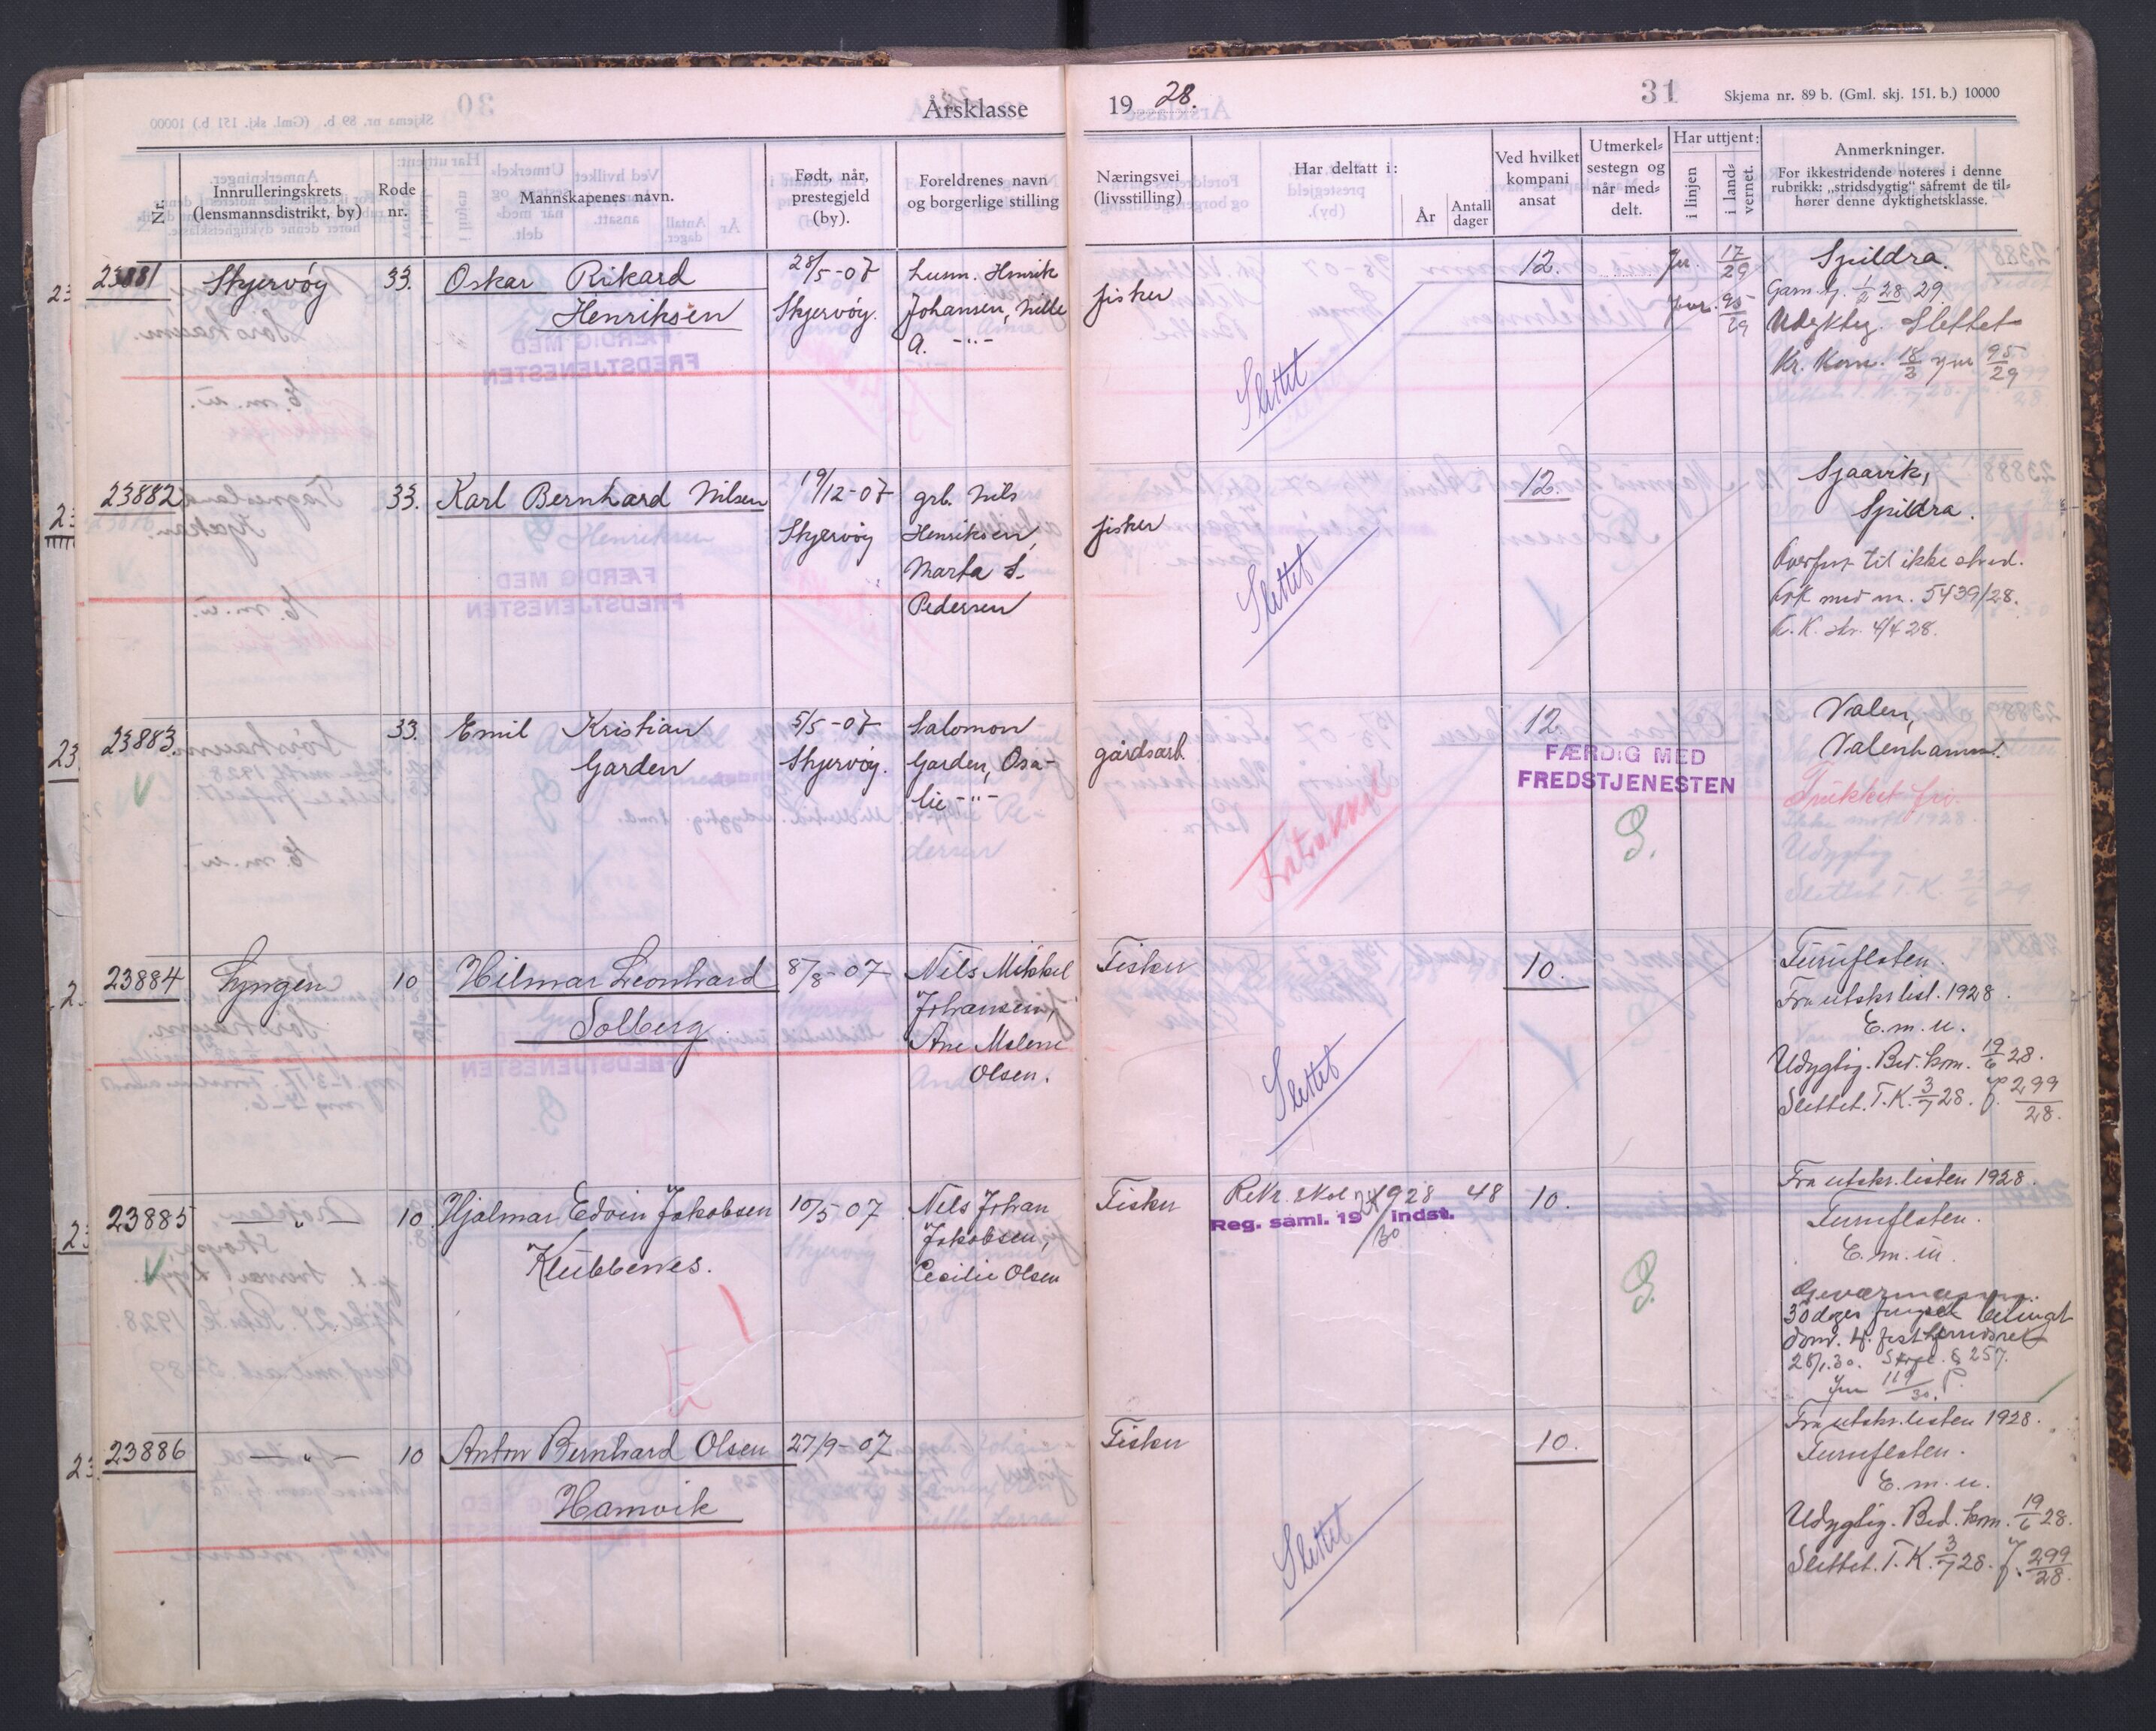 Årsklasse
1928.
31
Skjema nr. 89 b. (Gml. skj. 151. b.) 10000
Nr.
Innrulleringskrets
(lensmannsdistrikt, by)
Rode
nr.
Mannskapenes navn.
Født, når,
prestegjeld
(by).
Foreldrenes navn
og borgerlige stilling
Næringsvei
(livsstilling)
Har deltatt i:
År
Antall
dager
Ved hvilket
kompani
ansat
Utmerkel=
sestegn og
når med=
delt.
Har uttjent:
i linjen
i lands=
vernet.
Anmerkninger.
For ikkestridende noteres i denne
rubrikk: „stridsdygtig" såfremt de til=
hører denne dyktighetsklasse.
23881
Skjervøy
33.
Oskar Rikard
Henriksen
28/5-07
Skjervøy.
Henrik
Johansen, Nille
A. -"-
fisker
Slettet
12.
17/29
95/29
Spildra.
28 29
Udygtig. Slettet
Kr. Kom. 18/2 jnr 95/29
23882
33.
Karl Bernhard Nilsen
19/12-07
Skjervøy
grb. Nils
Henriksen,
Marta S.
Pedersen
fisker
Slettet
12.
Sjaavik,
Spildra.
Overført til ikke strid.
med nr. 5439/28.
K. skr. 4/4 28.
23883.
33.
Emil Kristian
Garden
5/5-07
Skjervøy.
Salomon
Garden, Osa-
lie -"-
gårdsarb.
Fritrukket
12.
FÆRDIG MED
FREDSTJENESTEN
G.
Valen,
Valenhamn.
Trukket fri.
23884
Lyngen
10
Hilmar Leonhard
Solberg.
8/8-07
Nils Mikkel
Johansen,
Ane Malene
Olsen.
Fisker
Slettet
10.
Furuflaten.
Fra utskr.list. 1928.
E.m.u.
Udygtig. Bed. kom. 19/6 28.
Slettet. T.K. 3/7 28. J. 299/28.
23885
— " —
10
Hjalmar Edvin Jakobsen
Klubbenes.
10/5 07
Nils Johan
Jakobsen,
Cecilie Olsen
Fisker
Rekr. skol 1928 48
Reg. saml. 19 24/30 indst.
10.
G.
Fra utskr.listen 1928.
Furuflaten.
E.m.u.
Geværmann.
30 dager fengsel betinget
dom.
28/1.30. § 257.
jnr 119/30.
23886
— " —
10
Anton Bernhard Olsen
Hamvik
27/9-07
Fisker
Slettet
10.
Fra utskr.listen 1928.
Furuflaten.
E.m.u.
Udygtig. Bed. kom. 19/6 28.
Slettet. T.K. 3/7 28. J. 299/28.